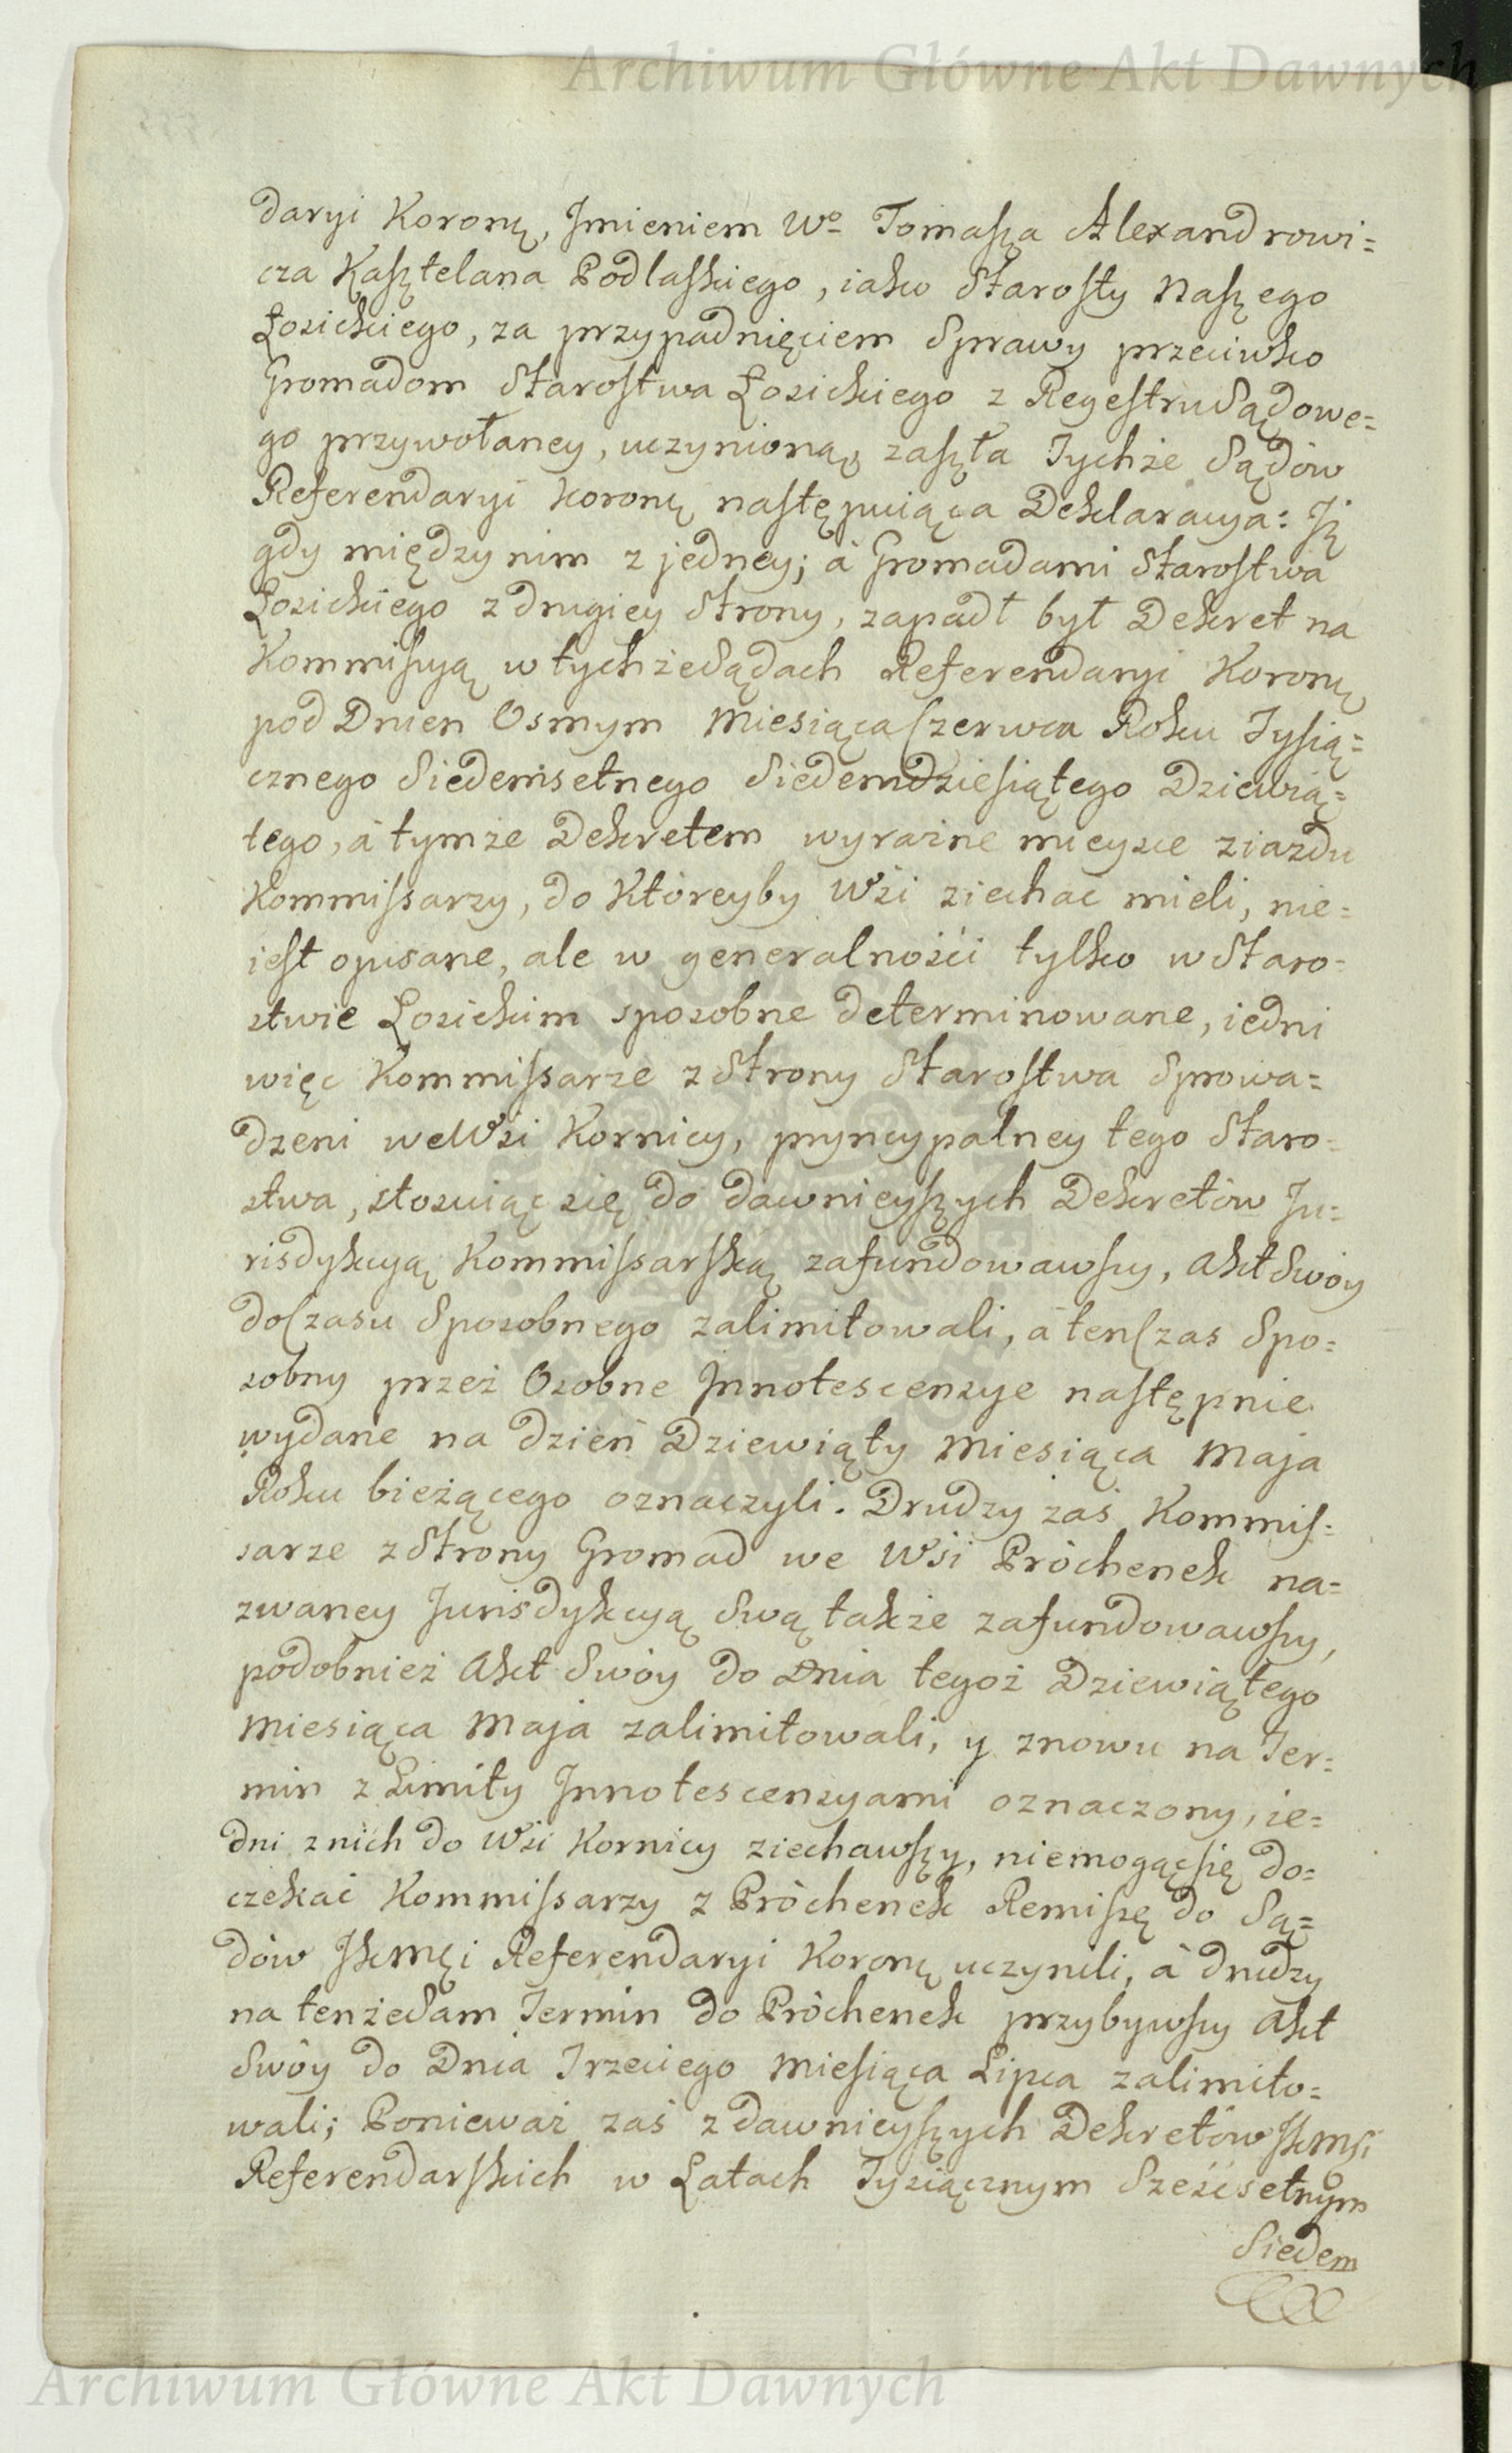 Archiwum Główne Akt Dawnych
daryi Koronꝫ, Jmieniem Wo Tomasza Alexandrowi=
cza Kasztelana Podlaskiego, iako Starosty Naszego
Łosickiego, za przypadnięciem Sprawy przeciwko
Gromadom Starostwa Łosickiego z Regestru Sądowe=
go przywołaney, uczynioną, zaszła Tychże Sądów
Referendaryi Koronꝫ następuiąca Deklaracya: Jż
gdy między nim z jedney; à Gromadami Starostwa
Łosickiego z drugiey Strony, zapadł był Dekret na
Kommissyą w tychże Sądach Referendaryi Koronꝫ
pod Dniem Osmym Miesiąca Czerwca Roku Tysią=
cznego Siedemsetnego Siedemdziesiątego Dziewią=
tego, à tymże Dekretem wyraźne mieysce ziazdu
Kommissarzy, do któreyby Wsi ziechac mieli, nie=
iest opisane, ale w generalności tylko w Staro=
stwie Łosickim sposobne determinowane, iedni
więc Kommissarze z Strony Starostwa Sprowa=
dzeni we Wsi Kornicy, pryncypalney tego Staro=
stwa, stosuiąc się do dawnieyszych Dekretów Ju=
risdykcyą Kommissarską zafundowawszy, Akt Swóy
do Czasu Sposobnego zalimitowali, à ten Czas Spo=
sobny przez Osobne Jnnotescencye następnie
wydane na dzień Dziewiąty Miesiąca Maja
Roku bieżącego oznaczyli. Drudzy zaś Kommis=
sarze z Strony Gromad we Wsi Próchenek na=
zwaney Jurisdykcyą Swą także zafundowawszy,
podobnież Akt Swóy do Dnia tegoż Dziewiątego
Miesiąca Maja zalimitowali, y znowu na Ter=
min z Limity Jnnotescencyami oznaczony, ie=
dni z nich do Wsi Kornicy ziechawszy, niemogąc się do=
czekać Kommissarzy z Próchenek Remissę do Są=
dów JKMci Referendaryi Koronꝫ uczynili, à drudzy
na tenże Sam Termin do Próchenek przybywszy Akt
Swóy do Dnia Trzeciego Miesiąca Lipca zalimito=
wali; Ponieważ zaś z dawnieyszych Dekretów JKMci
Referendarskich w Latach Tysiącznym Sześćsetnym
Siedem
Archiwum Główne Akt Dawnych